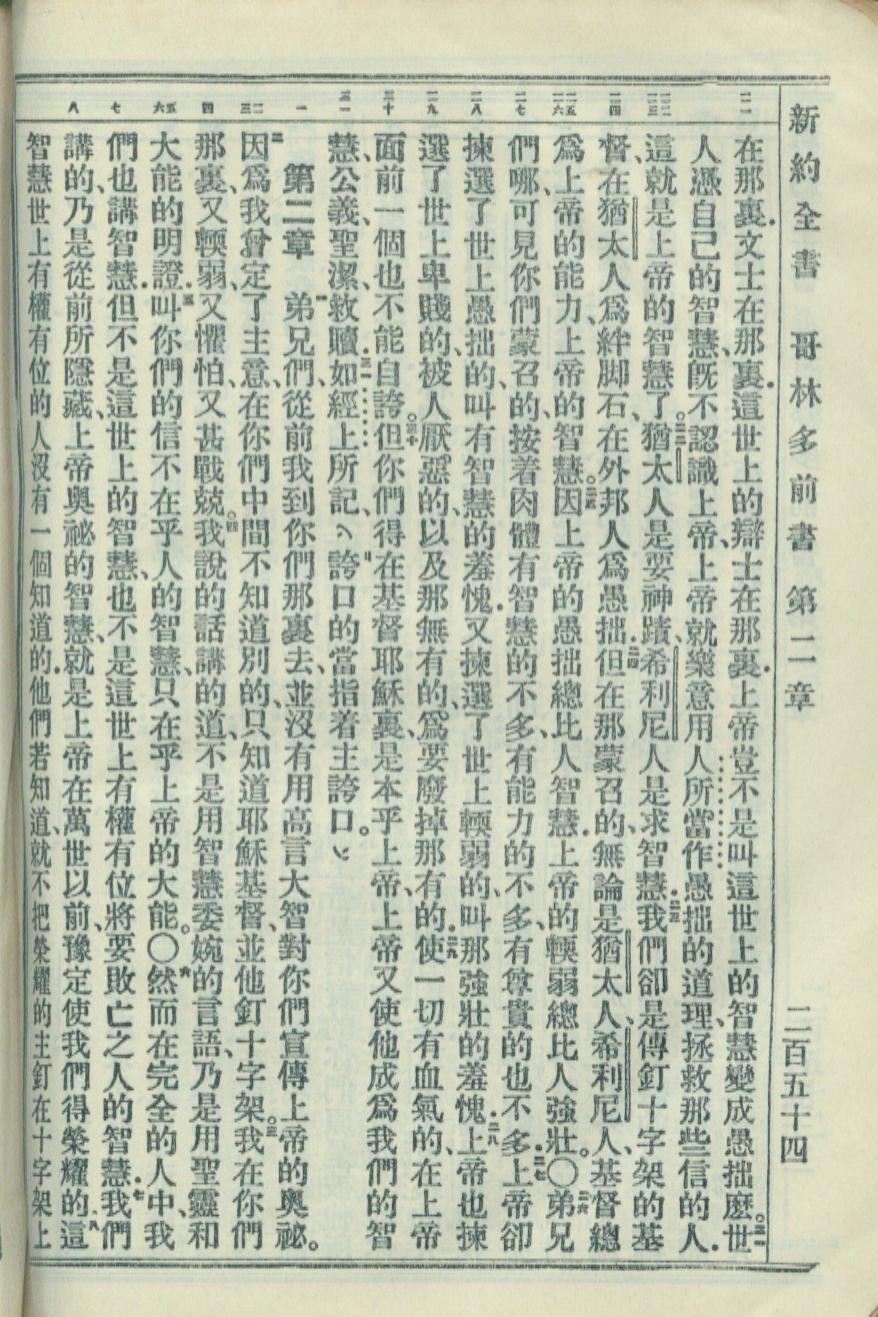 新約全書 哥林多前書 第二章 二百五十四
二一 二二 二三 二四 二五 二六 二七 二八 二九 三十 三一 一 二 三 四 五 六 七 八
在那裏.文士在那裏.這世上的辯士在那裏.上帝豈不是叫這世上的智慧變成愚拙麼。二一世
人憑自己的智慧、旣不認識上帝、上帝就樂意用人所當作愚拙的道理、拯救那些信的人.
這就是上帝的智慧了。二二猶太人是要神蹟、希利尼人是求智慧.二三我們卻是傳釘十字架的基
督、在猶太人爲絆脚石、在外邦人爲愚拙.二四但在那蒙召的、無論是猶太人、希利尼人、基督總
爲上帝的能力、上帝的智慧。二五因上帝的愚拙總比人智慧.上帝的輭弱總比人強壯。〇二六弟兄
們哪、可見你們蒙召的、按着肉體有智慧的不多、有能力的不多、有尊貴的也不多.二七上帝卻
揀選了世上愚拙的、叫有智慧的羞愧.又揀選了世上輭弱的、叫那強壯的羞愧.二八上帝也揀
選了世上卑賤的、被人厭惡的、以及那無有的、爲要廢掉那有的.二九使一切有血氣的、在上帝
面前一個也不能自誇。三十但你們得在基督耶穌裏、是本乎上帝、上帝又使他成爲我們的智
慧、公義、聖潔、救贖.三一如經上所記、『誇口的當指着主誇口。』
第二章 弟兄們、從前我到你們那裏去、並沒有用高言大智對你們宣傳上帝的奧祕。
二因爲我曾定了主意、在你們中間不知道別的、只知道耶穌基督、並他釘十字架。三我在你們
那裏、又輭弱、又懼怕、又甚戰兢。四我說的話講的道、不是用智慧委婉的言語、乃是用聖靈和
大能的明證.五叫你們的信不在乎人的智慧、只在乎上帝的大能。〇六然而在完全的人中、我
們也講智慧.但不是這世上的智慧、也不是這世上有權有位將要敗亡之人的智慧.七我們
講的、乃是從前所隱藏上帝奧祕的智慧、就是上帝在萬世以前、豫定使我們得榮耀的.八這
智慧世上有權有位的人沒有一個知道的.他們若知道、就不把榮耀的主釘在十字架上